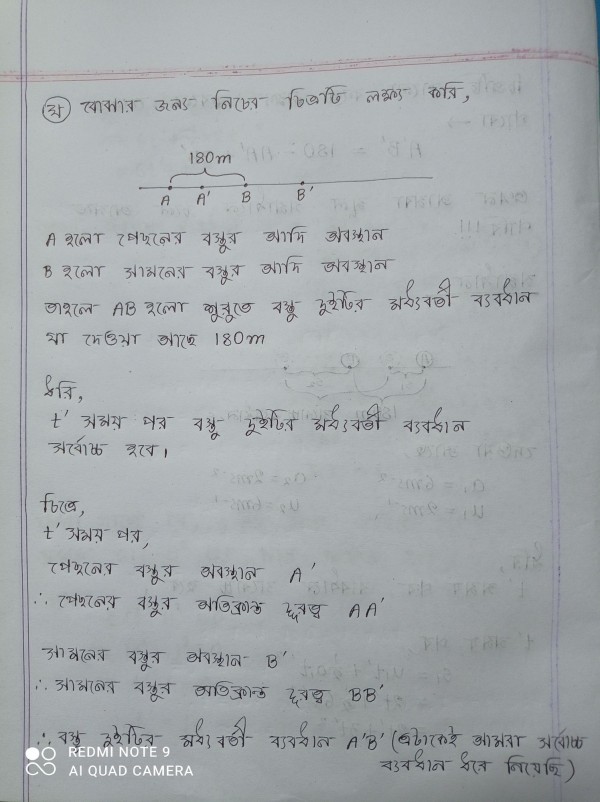 ঘ) বোঝার জন্য নিচের চিত্রটি লক্ষ্য করি,
180m
A A' B B'
A হলো পেছনের বস্তুর আদি অবস্থান
B হলো সামনের বস্তুর আদি অবস্থান
তাহলে AB হলো শুরুতে বস্তু দুইটির মধ্যবর্তী ব্যবধান
যা দেওয়া আছে 180m
ধরি,
t' সময় পর বস্তু দুইটির মধ্যবর্তী ব্যবধান
সর্বোচ্চ হবে।
চিত্রে,
t' সময় পর,
পেছনের বস্তুর অবস্থান A'
∴ পেছনের বস্তুর অতিক্রান্ত দূরত্ব AA'
সামনের বস্তুর অবস্থান B'
∴ সামনের বস্তুর অতিক্রান্ত দূরত্ব BB'
∴ বস্তু দুইটির মধ্যবর্তী ব্যবধান A'B' (এটাকেই আমরা সর্বোচ্চ
ব্যবধান ধরে নিয়েছি)
REDMI NOTE 9
AI QUAD CAMERA